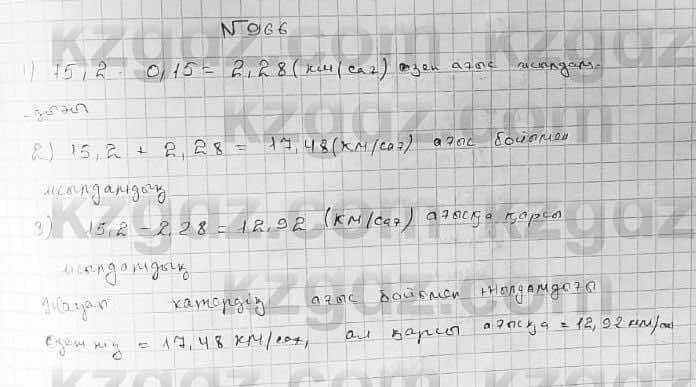 N966
1) 15,2 · 0,15 = 2,28 (км/сағ) өзен ағыс жылдам-
-дығы
2) 15,2 + 2,28 = 17,48 (км/сағ) ағыс бойымен
жылдамдық
3) 15,2 - 2,28 = 12,92 (км/сағ) ағысқа қарсы
жылдамдық
Жауап катердің ағыс бойымен жылдамдығы
= 17,48 км/сағ, ал қарсы ағысқа = 12,92 км/сағ
kzgdz.com